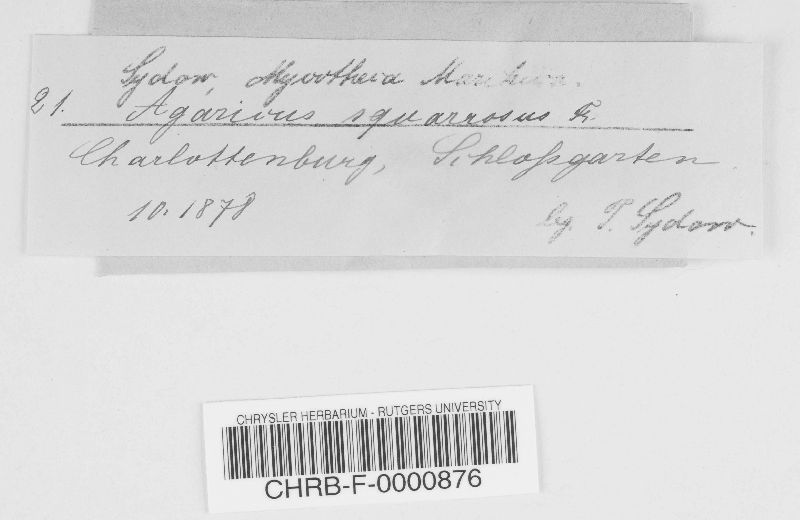 Sydow, Mycotheca Marchica.
21. Agaricus squarrosus Fr.
Charlottenburg, Schloßgarten.
10. 1878
leg. P. Sydow.
CHRYSLER HERBARIUM - RUTGERS UNIVERSITY
CHRB-F-0000876